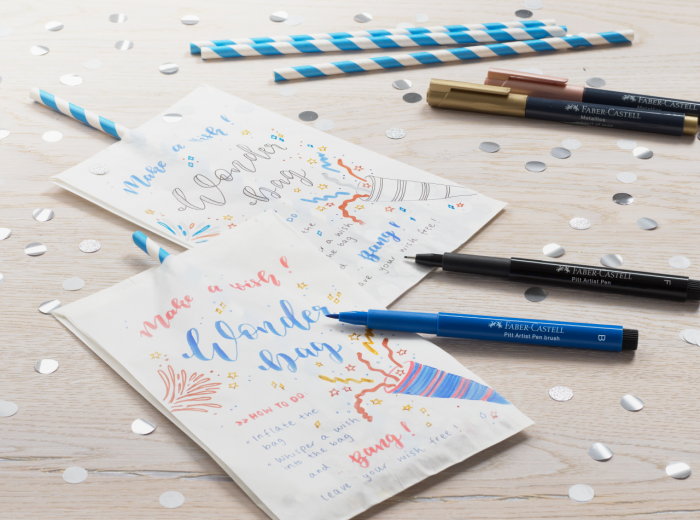 FABER-CASTELL
Metallics
FABER-CASTELL
Make a wish!
Wonder
bag
the
r a wish
the bag
d
Bang!
are your wish free!
FABER-CASTELL
Pitt Artist Pen
F
FABER-CASTELL
Pitt Artist Pen brush
B
Make a wish!
Wonder
bag
>> HOW TO DO
• Inflate the
bag
• Whisper a wish
into the bag
and
Bang!
leave your wish free!